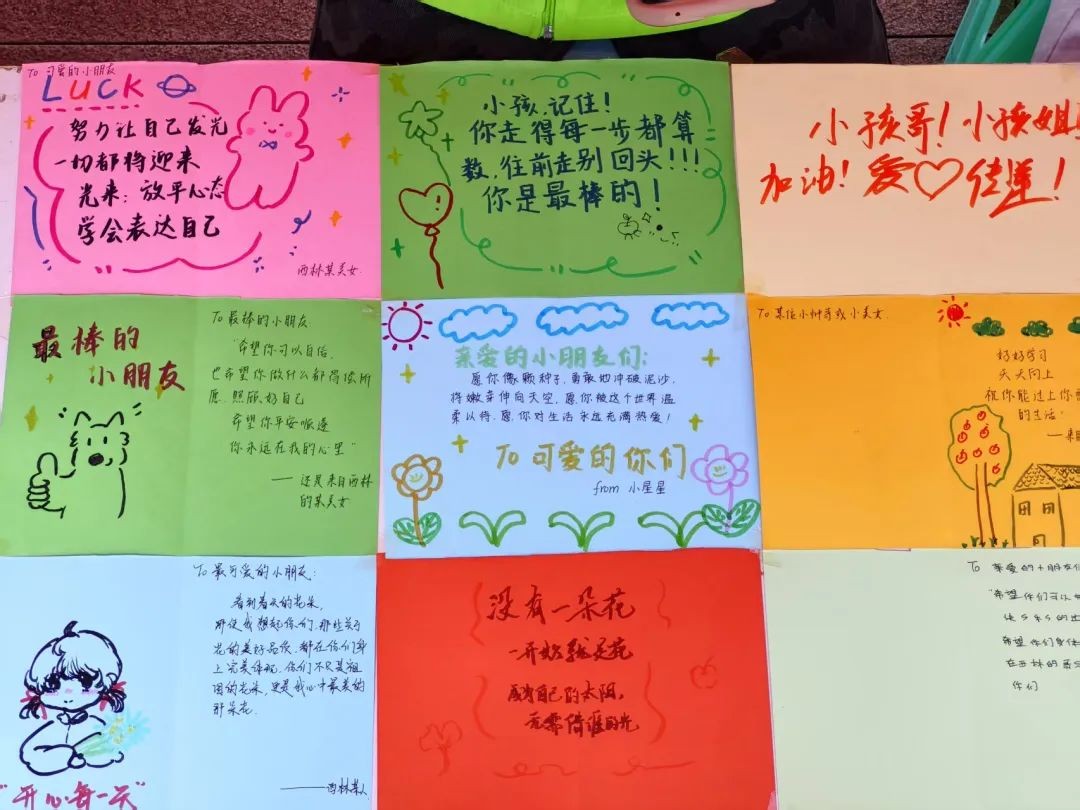 To 可爱的小朋友
LUCK
努力让自己发光
一切都将迎来
光来：放平心态
学会表达自己
西林某美女
小孩，记住！
你走得每一步都算
数，往前走别回头！！！
你是最棒的！
小孩哥！小孩姐
加油！爱♡佳莲！
最棒的
小朋友
To 最棒的小朋友
"希望你可以自信，
也希望你做什么都得偿所
愿，照顾好自己
希望你平安顺遂
你永远在我的心里"
——还是来自西林
的某美女
亲爱的小朋友们：
愿你像颗种子，勇敢地冲破泥沙，
将嫩芽伸向天空，愿你被这个世界温
柔以待，愿你对生活永远充满热爱！
To 可爱的你们
from 小星星
To 某位小帅哥或小美女
好好学习
天天向上
祝你能过上你
的生活
——来自
To 最可爱的小朋友：
看到春天的花朵，
那使我想起你们，那些关于
花的美好品质，都在你们身
上完美体现，你们不只是祖
国的花朵，更是我心中最美的
那朵花．
——西林某人
"开心每一天"
没有一朵花
一开始就是花
自己的太阳，
无需借谁的光
To 亲爱的小朋友们
"希望你们可以
希望你们身体
你们